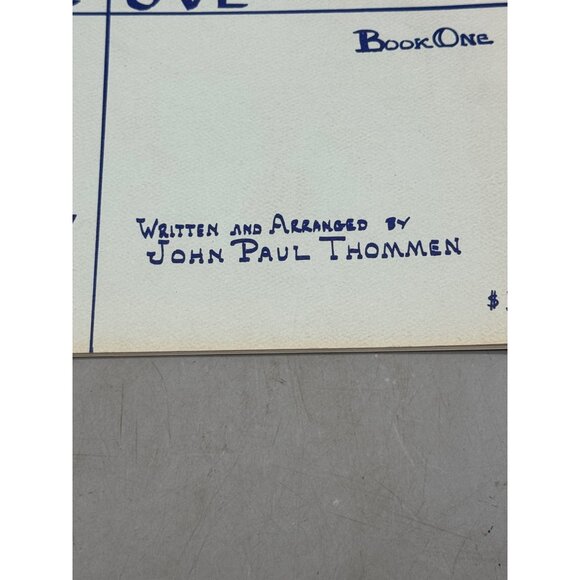 Book One
Written and Arranged by
John Paul Thommen
$